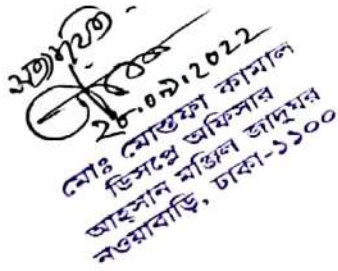 সত্যায়িত
২০.০৯.2022
মোঃ মোস্তফা কামাল
ডিসপ্লে অফিসার
আহসান মঞ্জিল জাদুঘর
নওয়াবাড়ি, ঢাকা-১১০০